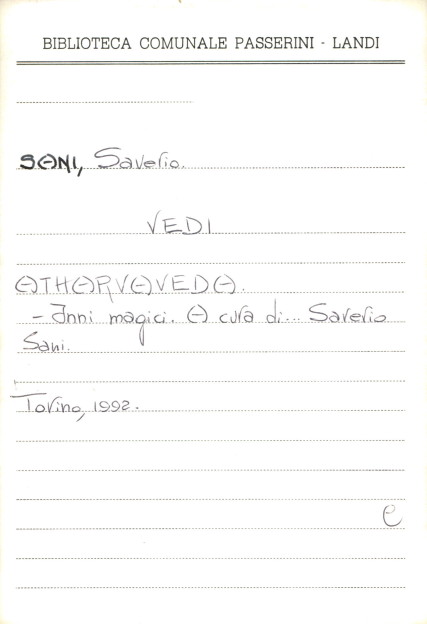 BIBLIOTECA COMUNALE PASSERINI - LANDI
SANI, Saverio.
VEDI
ATHARVAVEDA.
- Inni magici. A cura di... Saverio
Sani.
Torino, 1992.
e